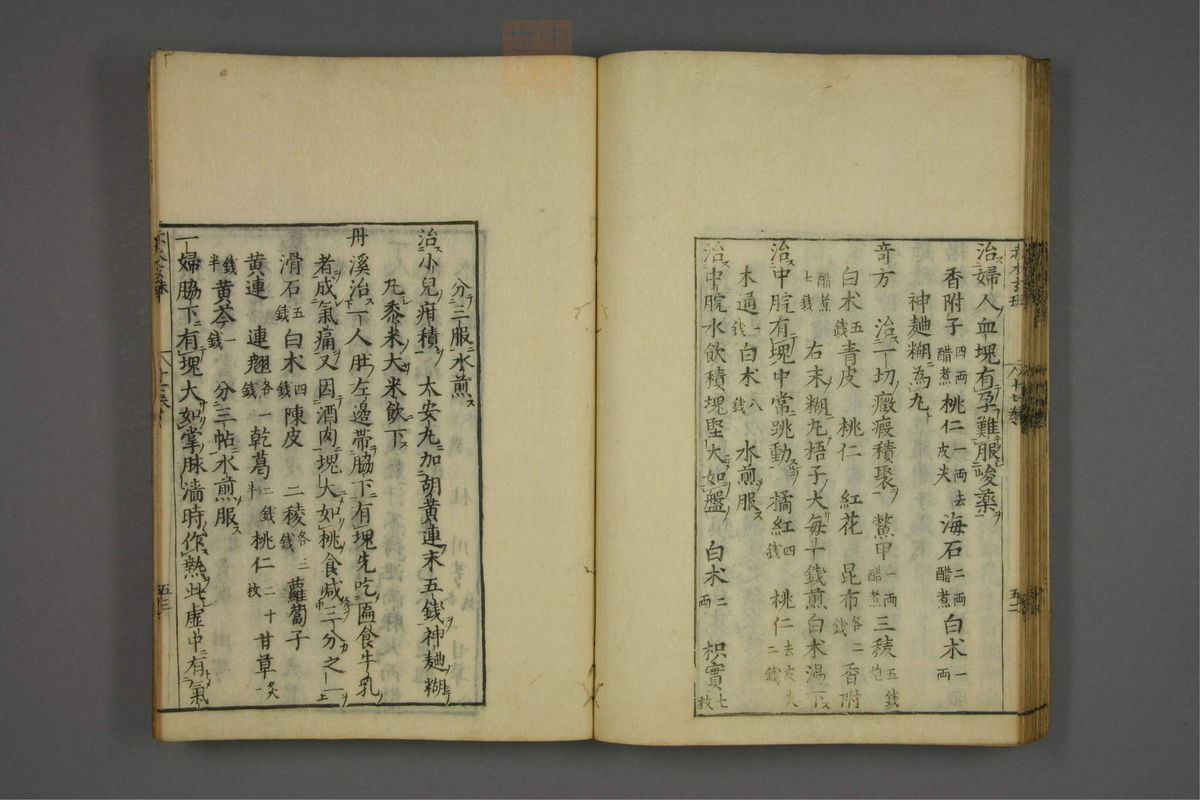 治婦人血塊有孕難服峻藥
香附子四両醋煮桃仁一両去皮尖海石二両醋煮白朮一両
神麯糊為丸
竒方治一切癥瘕積聚鱉甲一両醋煮三稜五銭炮
白朮五銭青皮桃仁紅花昆布各二銭香附醋煮七銭
右末糊丸梧子大每十銭煎白朮湯下
治中脘有塊中常跳動橘紅四銭桃仁去皮尖二銭
木通一銭白朮八銭水煎服
治中脘水飲積塊堅大如盤白朮二両枳實七枚
分三服水煎
治小兒疳積太安丸加胡黃連末五錢神麯糊
丸黍米大米飲下
丹溪治一人肚左邊帶脇下有塊先吃匾食牛乳
者成氣痛又因酒肉塊大如桃食減三分之一
滑石五銭白朮四銭陳皮二稜各三銭蘿蔔子
黃連連翹各一銭乾葛二銭半桃仁二十枚甘草炙一
銭半黃芩一銭分三帖水煎服
一婦脇下有塊大如掌脉濇時作熱此虛中有氣